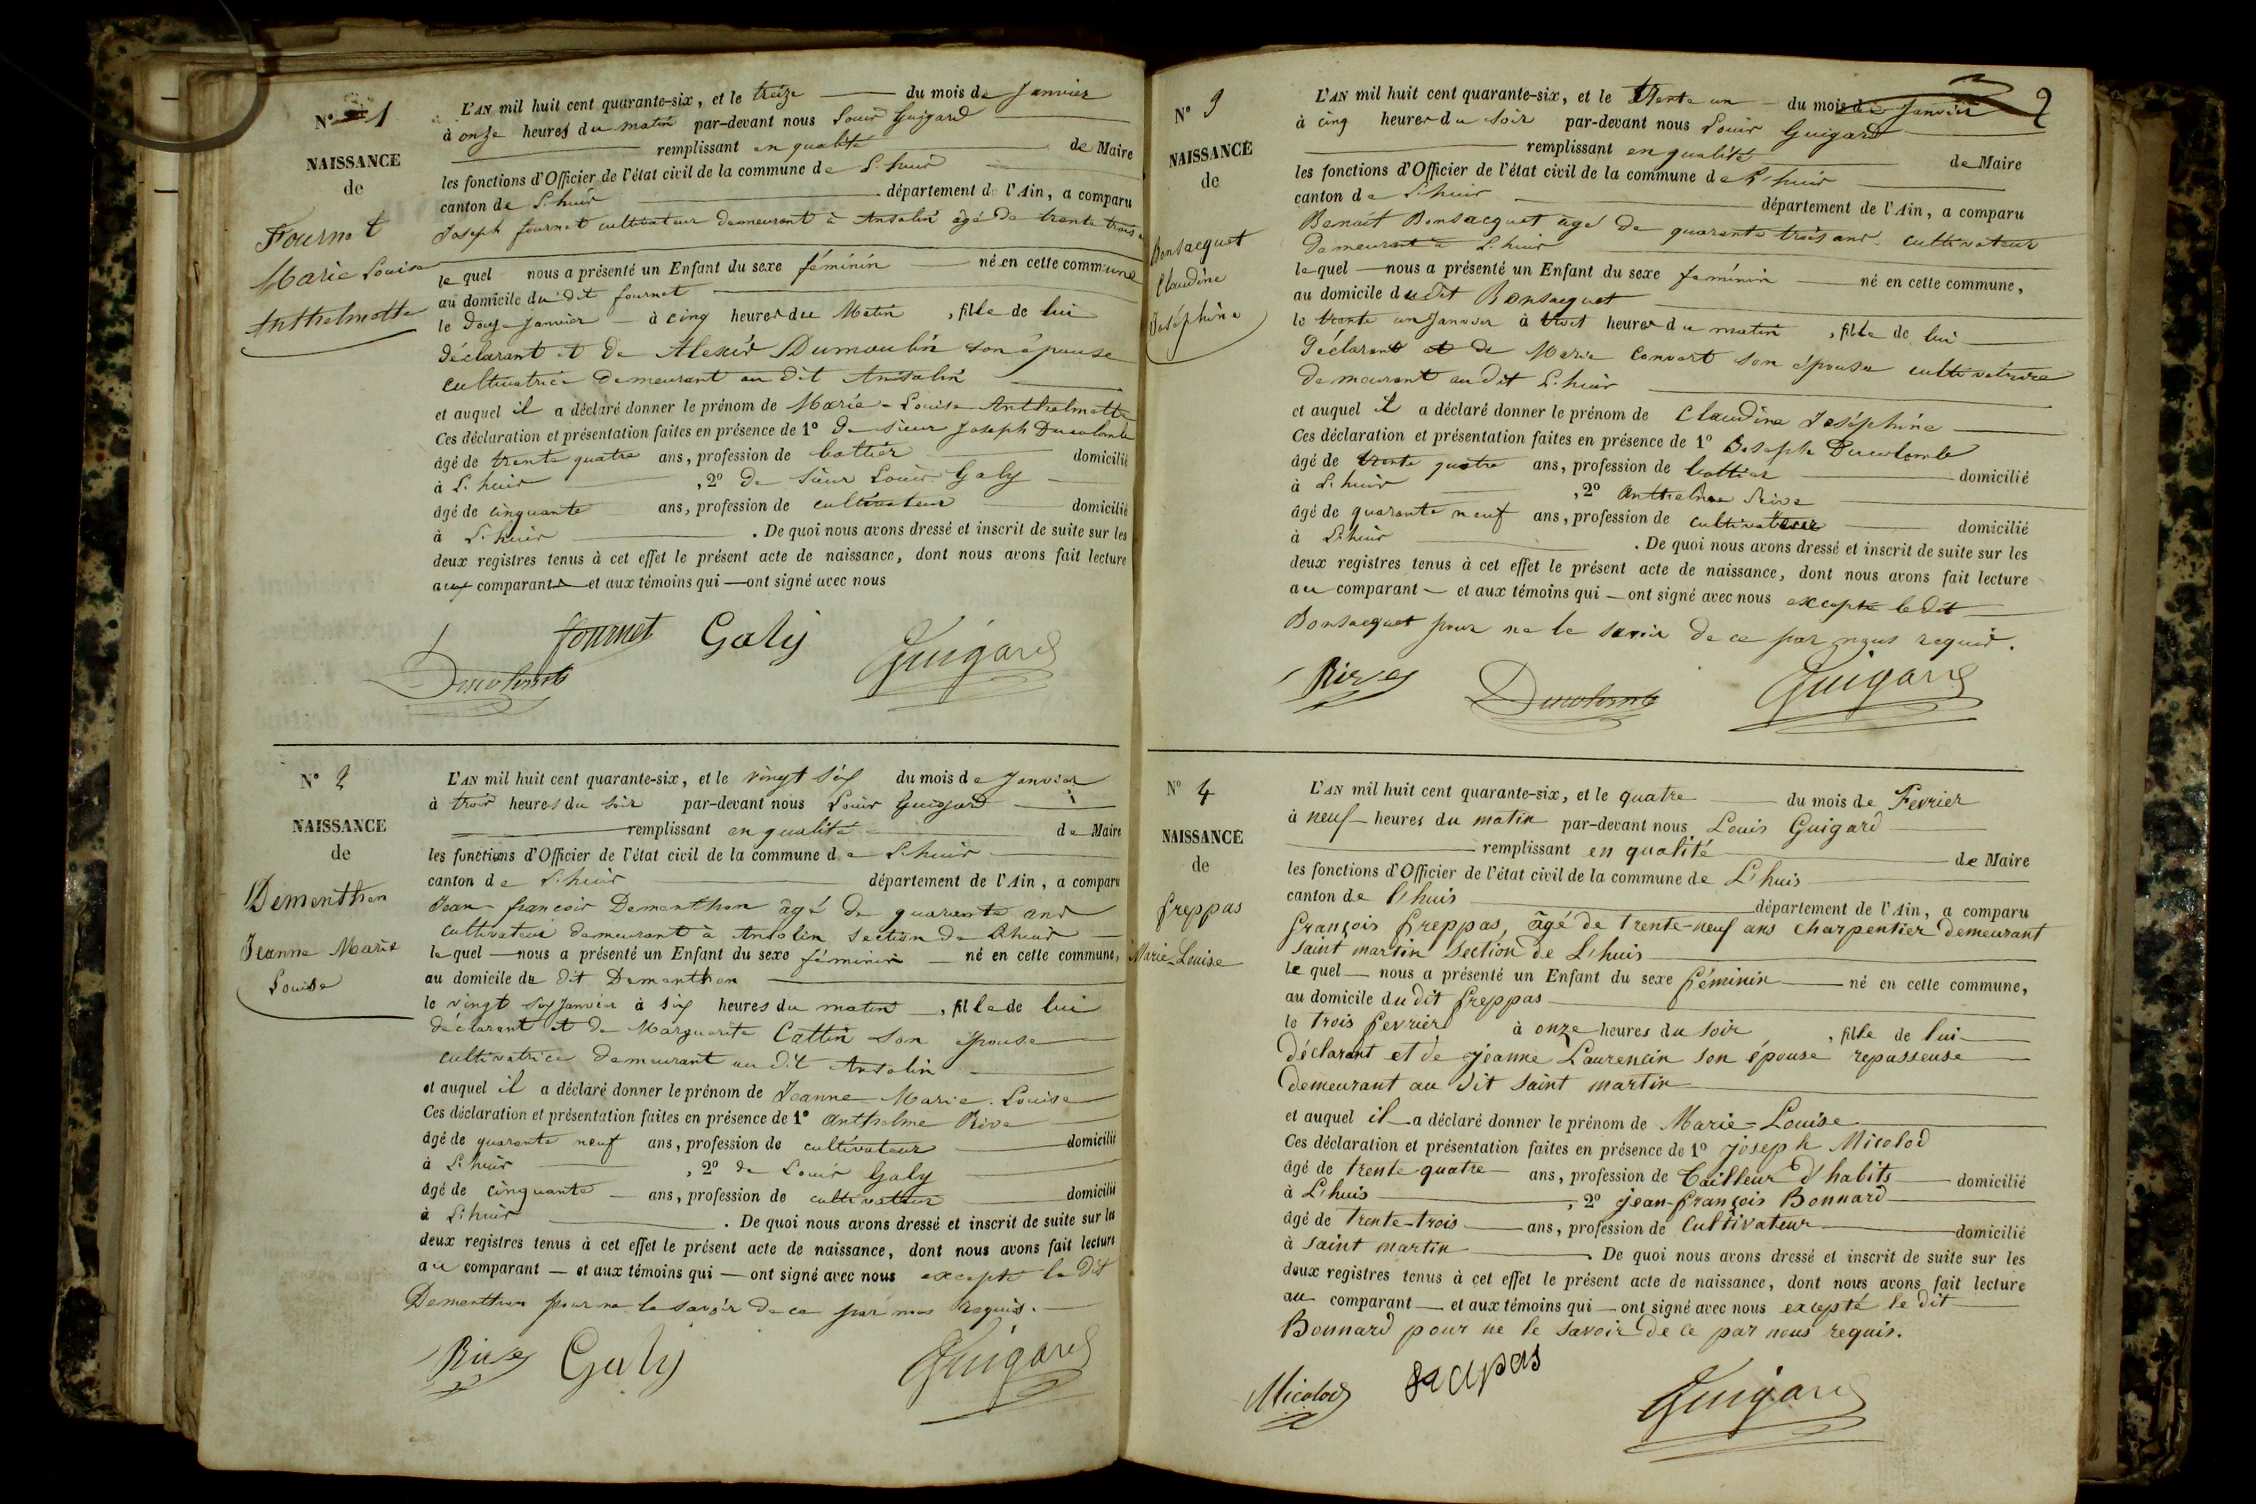 N° 1
NAISSANCE
de
Fournet
Marie Louise
Anthelmette
L'AN mil huit cent quarante-six, et le treize du mois de Janvier
à onze heures du matin par-devant nous Louis Guigard
remplissant en qualité de Maire
les fonctions d'Officier de l'état civil de la commune de L'huis
canton de L'huis département de l'Ain, a comparu
Joseph fournet cultivateur demeurant à Ansolin âgé de trente trois
le quel nous a présenté un Enfant du sexe féminin né en cette commune
au domicile du dit fournet
le douze Janvier à cinq heures du Matin, fille de lui
déclarant et de Alexis Dumoulin son épouse
cultivatrice demeurant au dit Ansolin
et auquel il a déclaré donner le prénom de Marie-Louise Anthelmette
Ces déclaration et présentation faites en présence de 1° de sieur Joseph Ducolomb
âgé de trente quatre ans, profession de bottier domicilié
à L'huis, 2° de sieur Louis Galy
âgé de cinquante ans, profession de cultivateur domicilié
à L'huis. De quoi nous avons dressé et inscrit de suite sur les
deux registres tenus à cet effet le présent acte de naissance, dont nous avons fait lecture
aux comparants et aux témoins qui ont signé avec nous
fournet Galy Guigard
Ducolomb
N° 2
NAISSANCE
de
Dementhon
Jeanne Marie
Louise
L'AN mil huit cent quarante-six, et le vingt six du mois de Janvier
à trois heures du soir par-devant nous Louis Guigard
remplissant en qualité de Maire
les fonctions d'Officier de l'état civil de la commune de L'huis
canton de L'huis département de l'Ain, a comparu
Jean-françois Dementhon âgé de quarante ans
cultivateur demeurant à Ansolin section de L'huis
le quel nous a présenté un Enfant du sexe féminin né en cette commune,
au domicile du dit Dementhon
le vingt six Janvier à six heures du matin, fille de lui
déclarant et de Marguerite Cattin son épouse
cultivatrice demeurant au dit Ansolin
et auquel il a déclaré donner le prénom de Jeanne-Marie-Louise
Ces déclaration et présentation faites en présence de 1° Anthelme Rive
âgé de quarante neuf ans, profession de cultivateur domicilié
à L'huis, 2° de Louis Galy
âgé de cinquante ans, profession de cultivateur domicilié
à L'huis. De quoi nous avons dressé et inscrit de suite sur les
deux registres tenus à cet effet le présent acte de naissance, dont nous avons fait lecture
au comparant et aux témoins qui ont signé avec nous excepté le dit
Dementhon pour ne le savoir de ce par nous requis.
Rive Galy Guigard
2
N° 3
NAISSANCE
de
Bonsacquet
Claudine
Joséphine
L'AN mil huit cent quarante-six, et le trente un du mois de Janvier
à cinq heures du soir par-devant nous Louis Guigard
remplissant en qualité de Maire
les fonctions d'Officier de l'état civil de la commune de L'huis
canton de L'huis département de l'Ain, a comparu
Benoit Bonsacquet âgé de quarante trois ans cultivateur
demeurant à L'huis
le quel nous a présenté un Enfant du sexe féminin né en cette commune,
au domicile du dit Bonsacquet
le trente un Janvier à trois heures du matin, fille de lui
déclarant et de Marie Convert son épouse cultivatrice
demeurant au dit L'huis
et auquel il a déclaré donner le prénom de Claudine Joséphine
Ces déclaration et présentation faites en présence de 1° Joseph Ducolomb
âgé de trente quatre ans, profession de bottier domicilié
à L'huis, 2° Anthelme Rive
âgé de quarante neuf ans, profession de cultivateur domicilié
à L'huis. De quoi nous avons dressé et inscrit de suite sur les
deux registres tenus à cet effet le présent acte de naissance, dont nous avons fait lecture
au comparant et aux témoins qui ont signé avec nous excepté le dit
Bonsacquet pour ne le savoir de ce par nous requis.
Rive Ducolomb Guigard
N° 4
NAISSANCE
de
freppas
Marie-Louise
L'AN mil huit cent quarante-six, et le quatre du mois de Fevrier
à neuf heures du matin par-devant nous Louis Guigard
remplissant en qualité de Maire
les fonctions d'Officier de l'état civil de la commune de L'huis
canton de l'huis département de l'Ain, a comparu
françois freppas, âgé de trente-neuf ans charpentier demeurant
saint martin section de L'huis
le quel nous a présenté un Enfant du sexe féminin né en cette commune,
au domicile du dit freppas
le trois fevrier à onze heures du soir, fille de lui
déclarant et de jeanne Laurencin son épouse repasseuse
demeurant au dit saint martin
et auquel il a déclaré donner le prénom de Marie-Louise
Ces déclaration et présentation faites en présence de 1° joseph Micolod
âgé de trente-quatre ans, profession de Tailleur d'habits domicilié
à L'huis, 2° jean-françois Bonnard
âgé de trente-trois ans, profession de Cultivateur domicilié
à saint martin. De quoi nous avons dressé et inscrit de suite sur les
deux registres tenus à cet effet le présent acte de naissance, dont nous avons fait lecture
au comparant et aux témoins qui ont signé avec nous excepté le dit
Bonnard pour ne le savoir de ce par nous requis.
Micolod Guigard